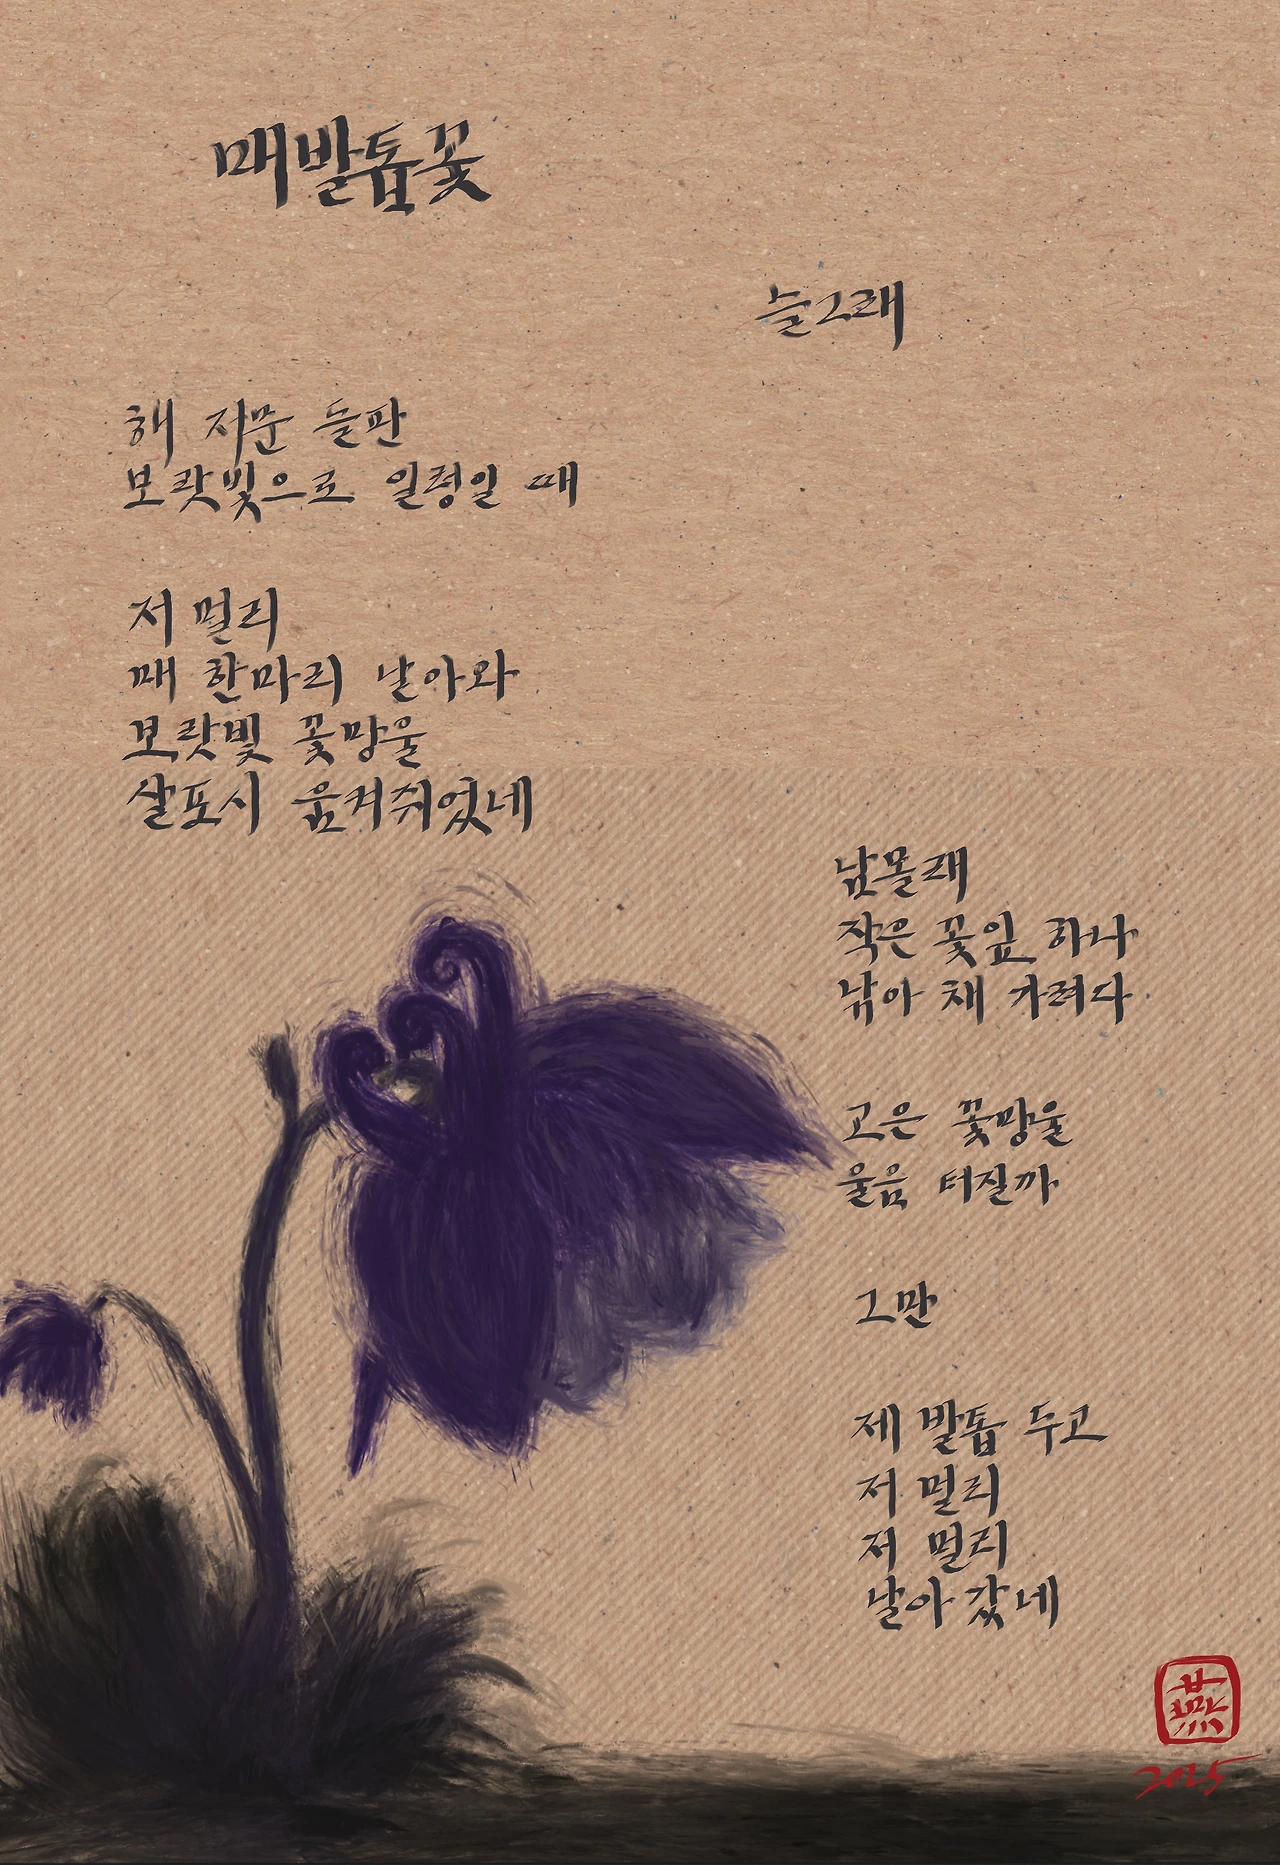 매발톱꽃
늘그래
해 저문 들판
보랏빛으로 일렁일 때
저 멀리
매 한마리 날아와
보랏빛 꽃망울
살포시 움켜쥐었네
남몰래
작은 꽃잎 하나
낚아 채 가려다
고은 꽃망울
울음 터질까
그만
제 발톱 두고
저 멀리
저 멀리
날아갔네
2025